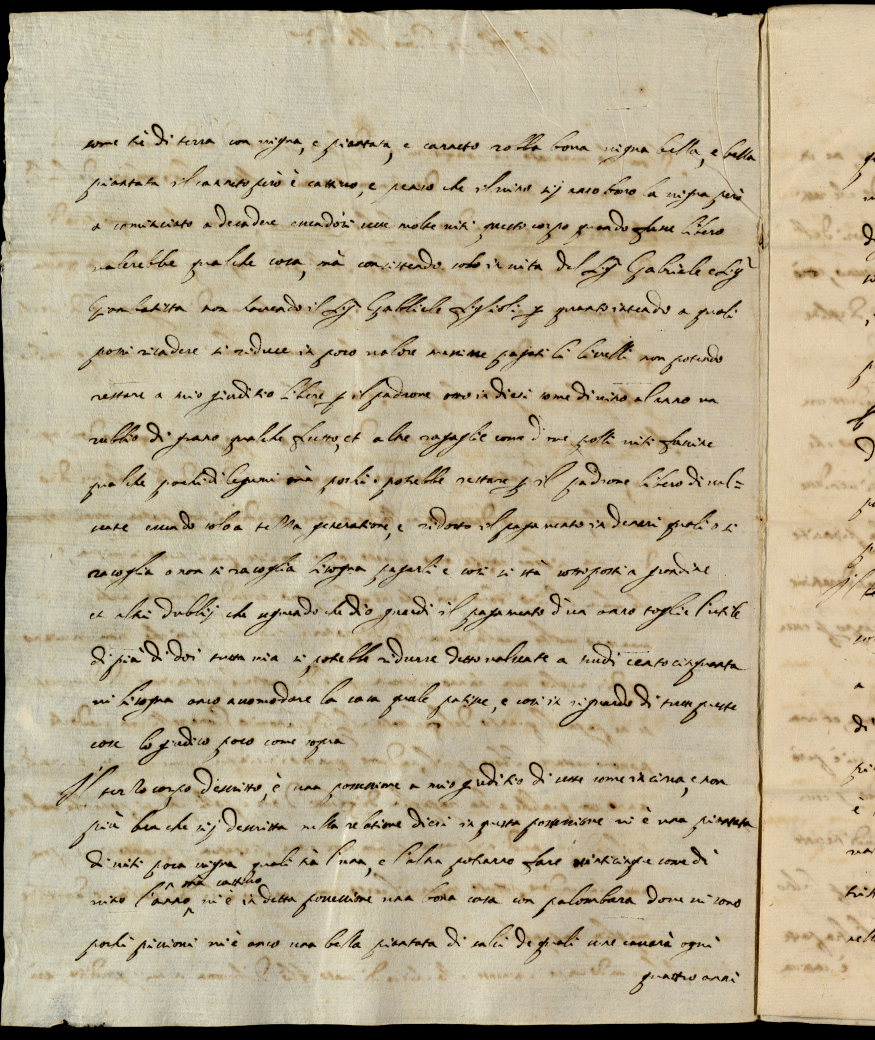 some tré di terra con vigna, e piantata, e canneto robba bona vigna bella, e bella
piantata il canneto però è cattivo, e penso che il vino sij anco bono la vigna però
a cominciato a decadere essendosi secce molte viti questo corpo quando fusse libero
valerebbe qualche cosa, mà consistendo solo in vita del Sigr Gabriele e Sigr
Gioan batista non havendo il Sigr Gabbriele figlioli p quanto intendo a quali
possi ricadere si riduce in poco valore massime pagati li livelli non potendo
restare a mio giuditio libere p il padrone otto in dieci some di vino al anno un
rubbio di grano qualche frutto, et altre regaglie come di polli viti fassine
qualche poco di legumi mà pochi potrebbe restare p il padrone libero di val=
sente essendo solo a terza generatione, e ridotto il pagamento in denari quali o si
racoglia o non si racoglia bisogna pagarli e così si stà sottoposti a grandine
et altri dubbij che seguendo che dio guardi il pagamento d'un anno toglie l'utile
di più di doi tutta via si potrebbe ridurre detto valsente a scudi cento cinquanta
vi bisogna anco accomodare la casa quale patisse, e così in riguardo di tutte queste
cose lo giudico poco come sopra
Il terzo corpo descritto, è una possessione a mio giuditio di sette some in circa, e non
più ben che sij descritta nella relatione dieci in questa possessione vi è una piantata
di viti poca vigna quali trà l'una, e l'altra potranno fare vinticinque some di
vino l'anno, mà cattivo vi è in detta possessione una bona casa con palombara dove vi sono
pochi piccioni vi è anco una bella piantata di salci de quali se ne cavarà ogni
quattro anni